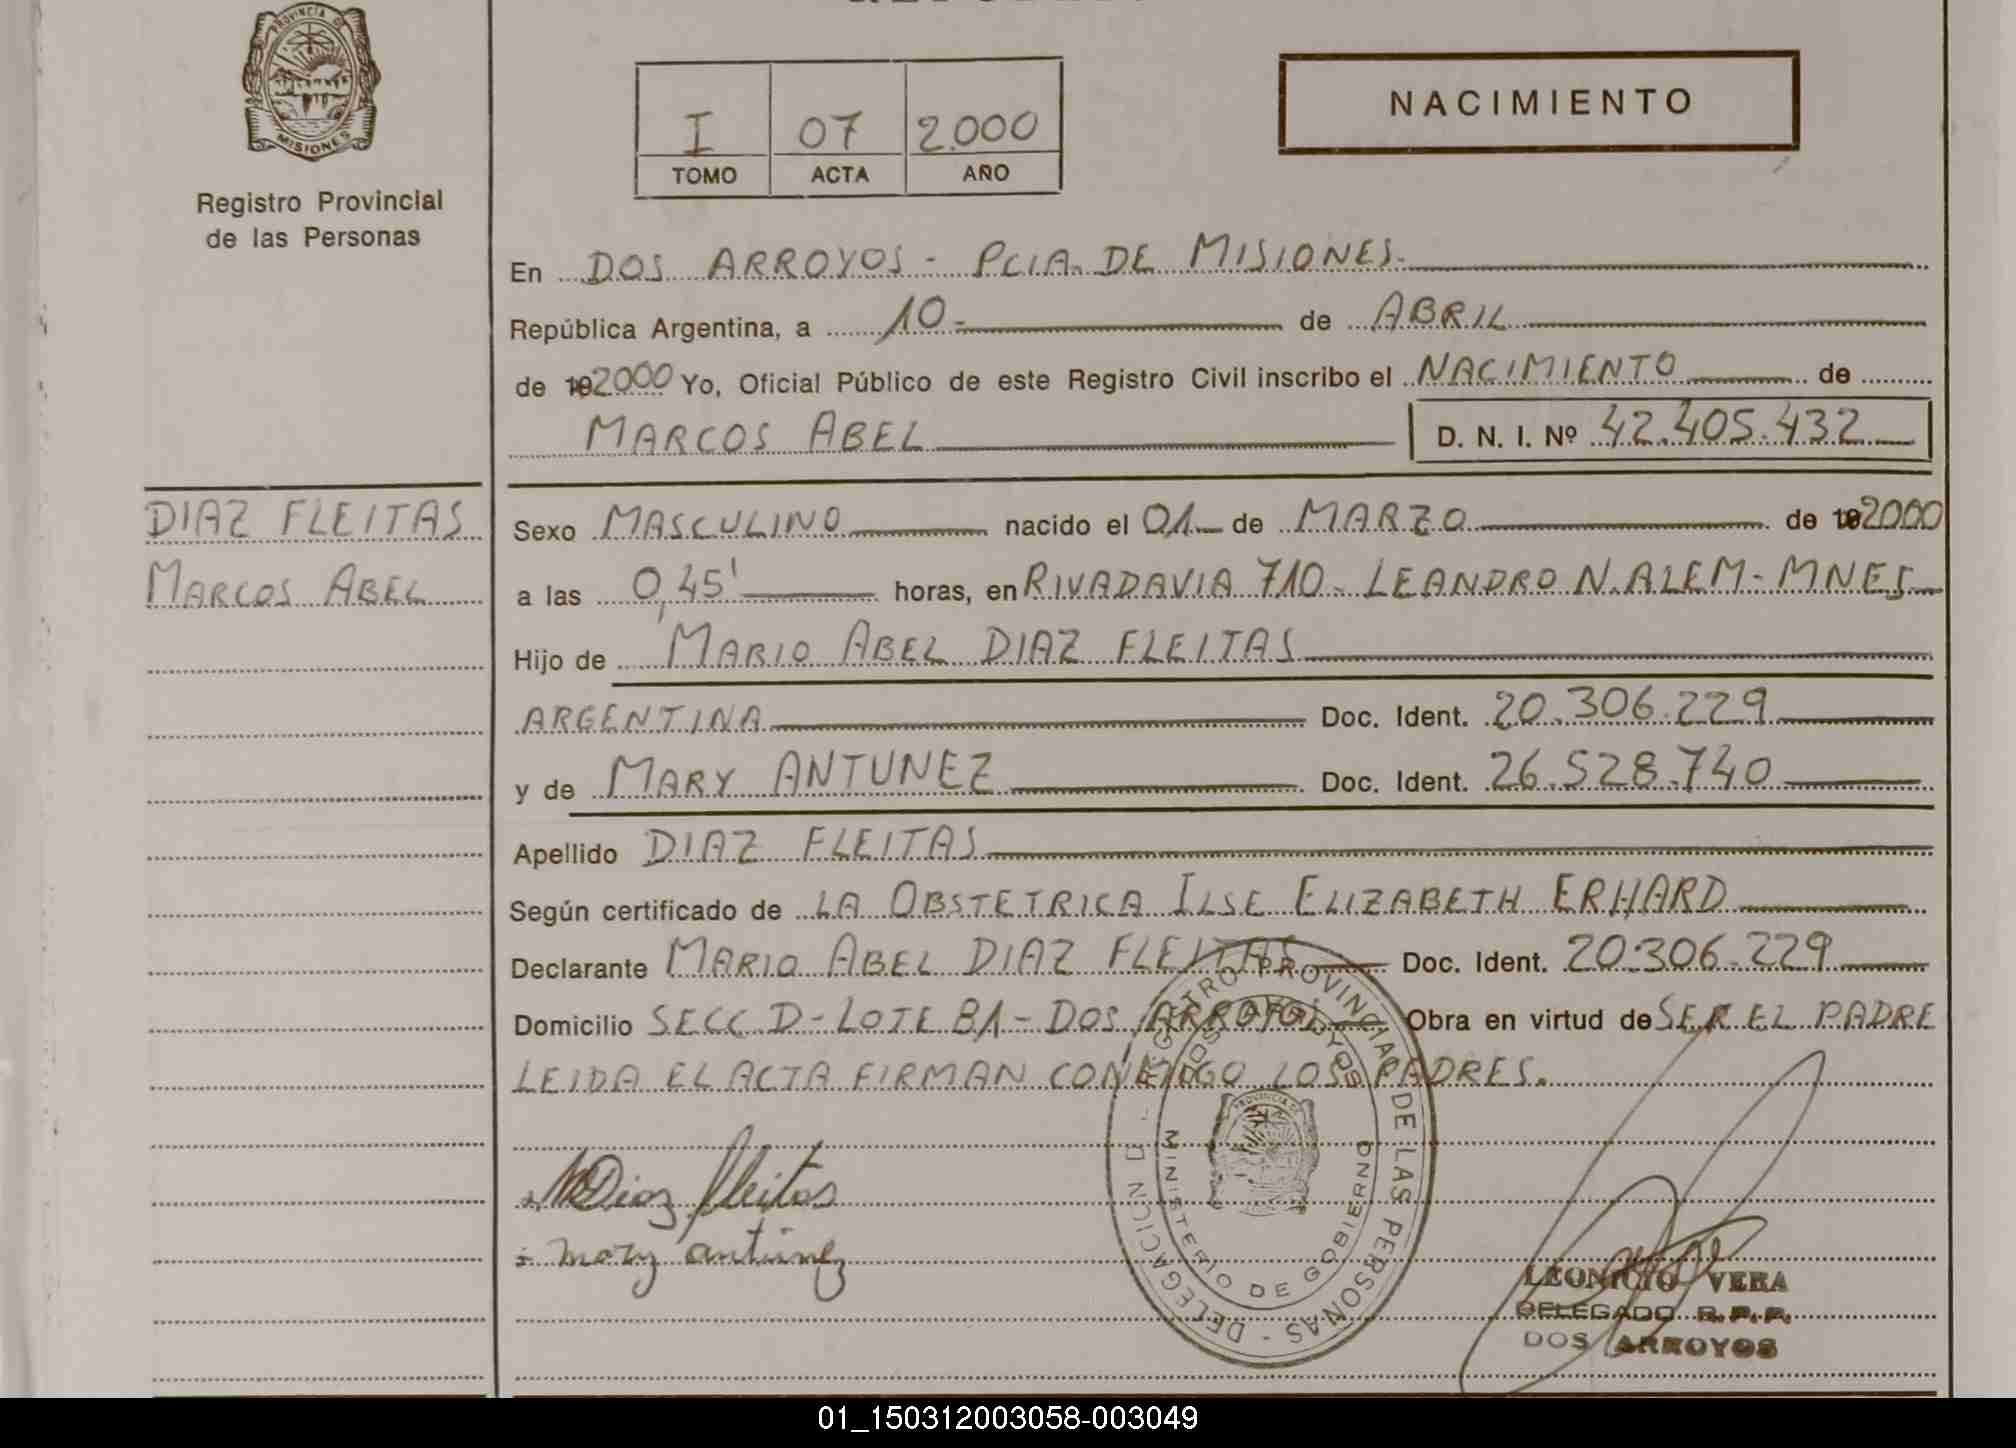 PROVINCIA DE
MISIONES
Registro Provincial
de las Personas
I 07 2.000
TOMO ACTA AÑO
NACIMIENTO
En DOS ARROYOS - PCIA. DE MISIONES.
República Argentina, a 10- de ABRIL
de 192000 Yo, Oficial Público de este Registro Civil inscribo el NACIMIENTO de
MARCOS ABEL D. N. I. Nº 42.405.432
DIAZ FLEITAS
MARCOS ABEL
Sexo MASCULINO nacido el 01 de MARZO de 192000
a las 0,45' horas, en RIVADAVIA 710- LEANDRO N. ALEM - MNES
Hijo de MARIO ABEL DIAZ FLEITAS
ARGENTINA Doc. Ident. 20.306.229
y de MARY ANTUNEZ Doc. Ident. 26.528.740
Apellido DIAZ FLEITAS
Según certificado de LA OBSTETRICA ILSE ELIZABETH ERHARD
Declarante MARIO ABEL DIAZ FLEITAS Doc. Ident. 20.306.229
Domicilio SECC D - LOTE 81 - DOS ARROYOS Obra en virtud de SER EL PADRE
LEIDA EL ACTA FIRMAN CONMIGO LOS PADRES.
REGISTRO PROVINCIAL DE LAS PERSONAS - DELEGACION
DOS ARROYOS
PROVINCIA DE
MINISTERIO DE GOBIERNO
Diaz fleitas
mary antunez
LEONICIO VERA
DELEGADO R.P.P.
DOS ARROYOS
01_150312003058-003049